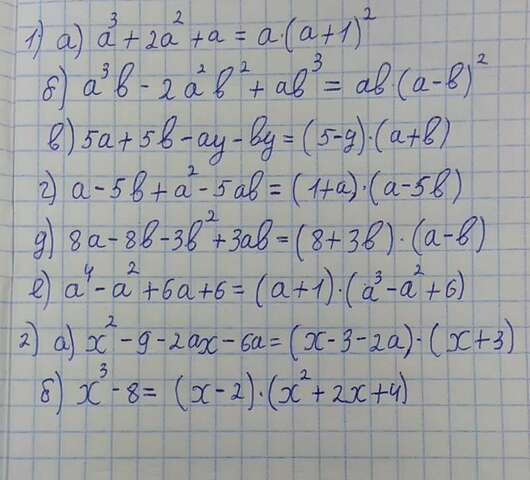 1) а) a³ + 2a² + a = a·(a+1)²
б) a³b - 2a²b² + ab³ = ab·(a-b)²
в) 5a + 5b - ay - by = (5-y)·(a+b)
г) a - 5b + a² - 5ab = (1+a)·(a-5b)
д) 8a - 8b - 3b² + 3ab = (8+3b)·(a-b)
е) a⁴ - a² + 6a + 6 = (a+1)·(a³-a²+6)
2) а) x² - 9 - 2ax - 6a = (x-3-2a)·(x+3)
б) x³ - 8 = (x-2)·(x²+2x+4)